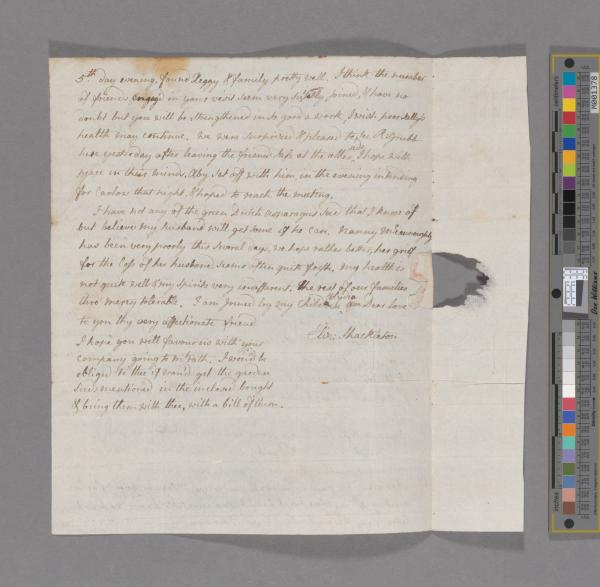 5th day evening, found Peggy & family pretty well. I think the number
of friends engag'd in your visit seem very suitably joined, & have no
doubt but you will be strengthened in so good a work, I wish poor Sally's
health may continue. We were surprized & pleased to see R Grubb
here yesterday after leaving the friends safe at the other side, I hope with
peace in their minds. Aby set off with him, in the evening intending
for Carlow that night & hoped to reach the meeting.
I have not any of the green Dutch asparagus seed that I know of
but believe my husband will get some if he can. Nanny
has been very poorly this several days, we hope rather better, her grief
for the loss of her husband seems often quite fresh. my health is
not quite well & my spirits very indifferent. the rest of our families
are mercy tolerable. I am joined by my children in dear love
to you thy very affectionate friend
Eliz: Shackleton
I hope you will favour us with your
company going to I wou'd be
obliged to thee if wou'd get the garden
seeds mentioned in the inclosed bought
& bring them with thee, with a bill of them.
centimetres
inches
M001378
Don Williams